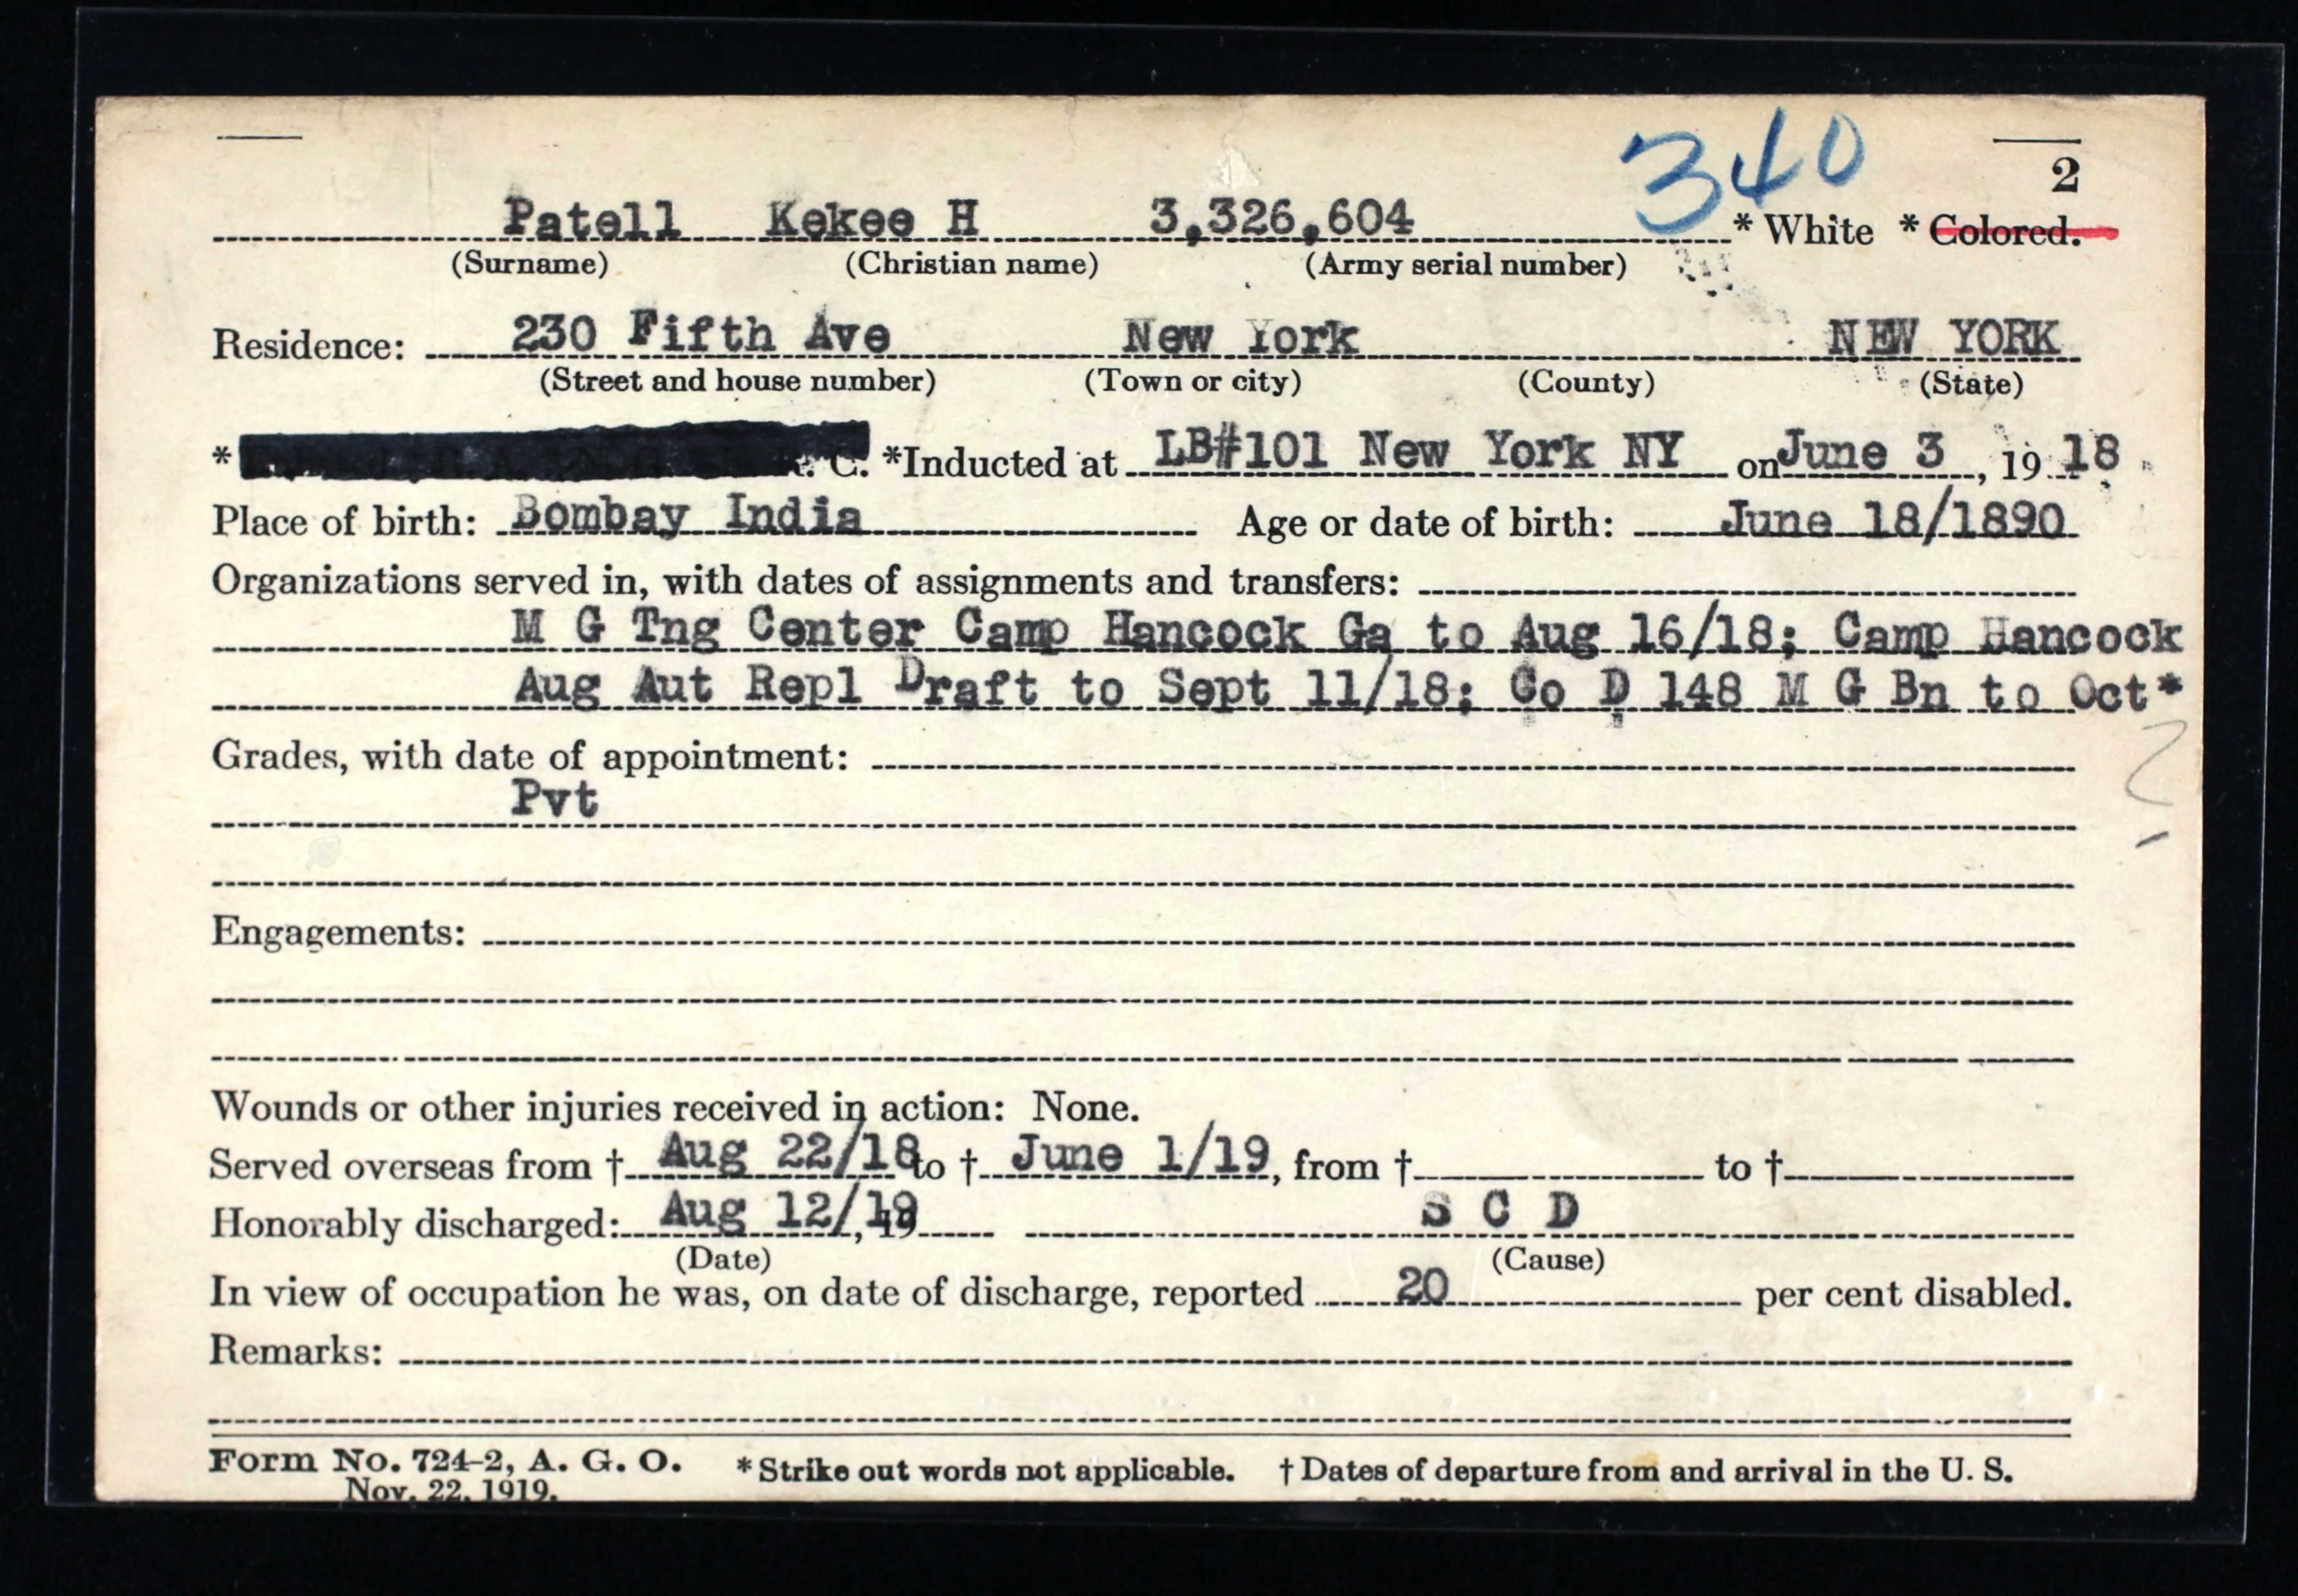 340
2
Patell Kekee H 3,326,604 * White * Colored.
(Surname) (Christian name) (Army serial number)
Residence: 230 Fifth Ave New York NEW YORK
(Street and house number) (Town or city) (County) (State)
* C. *Inducted at LB#101 New York NY on June 3, 1918
Place of birth: Bombay India Age or date of birth: June 18/1890
Organizations served in, with dates of assignments and transfers:
M G Tng Center Camp Hancock Ga to Aug 16/18; Camp Hancock
Aug Aut Repl Draft to Sept 11/18; Co D 148 M G Bn to Oct*
Grades, with date of appointment:
Pvt
Engagements:
Wounds or other injuries received in action: None.
Served overseas from † Aug 22/18 to † June 1/19, from † to †
Honorably discharged: Aug 12/19, 19 S C D
(Date) (Cause)
In view of occupation he was, on date of discharge, reported 20 per cent disabled.
Remarks:
Form No. 724-2, A. G. O. * Strike out words not applicable. † Dates of departure from and arrival in the U. S.
Nov. 22, 1919.